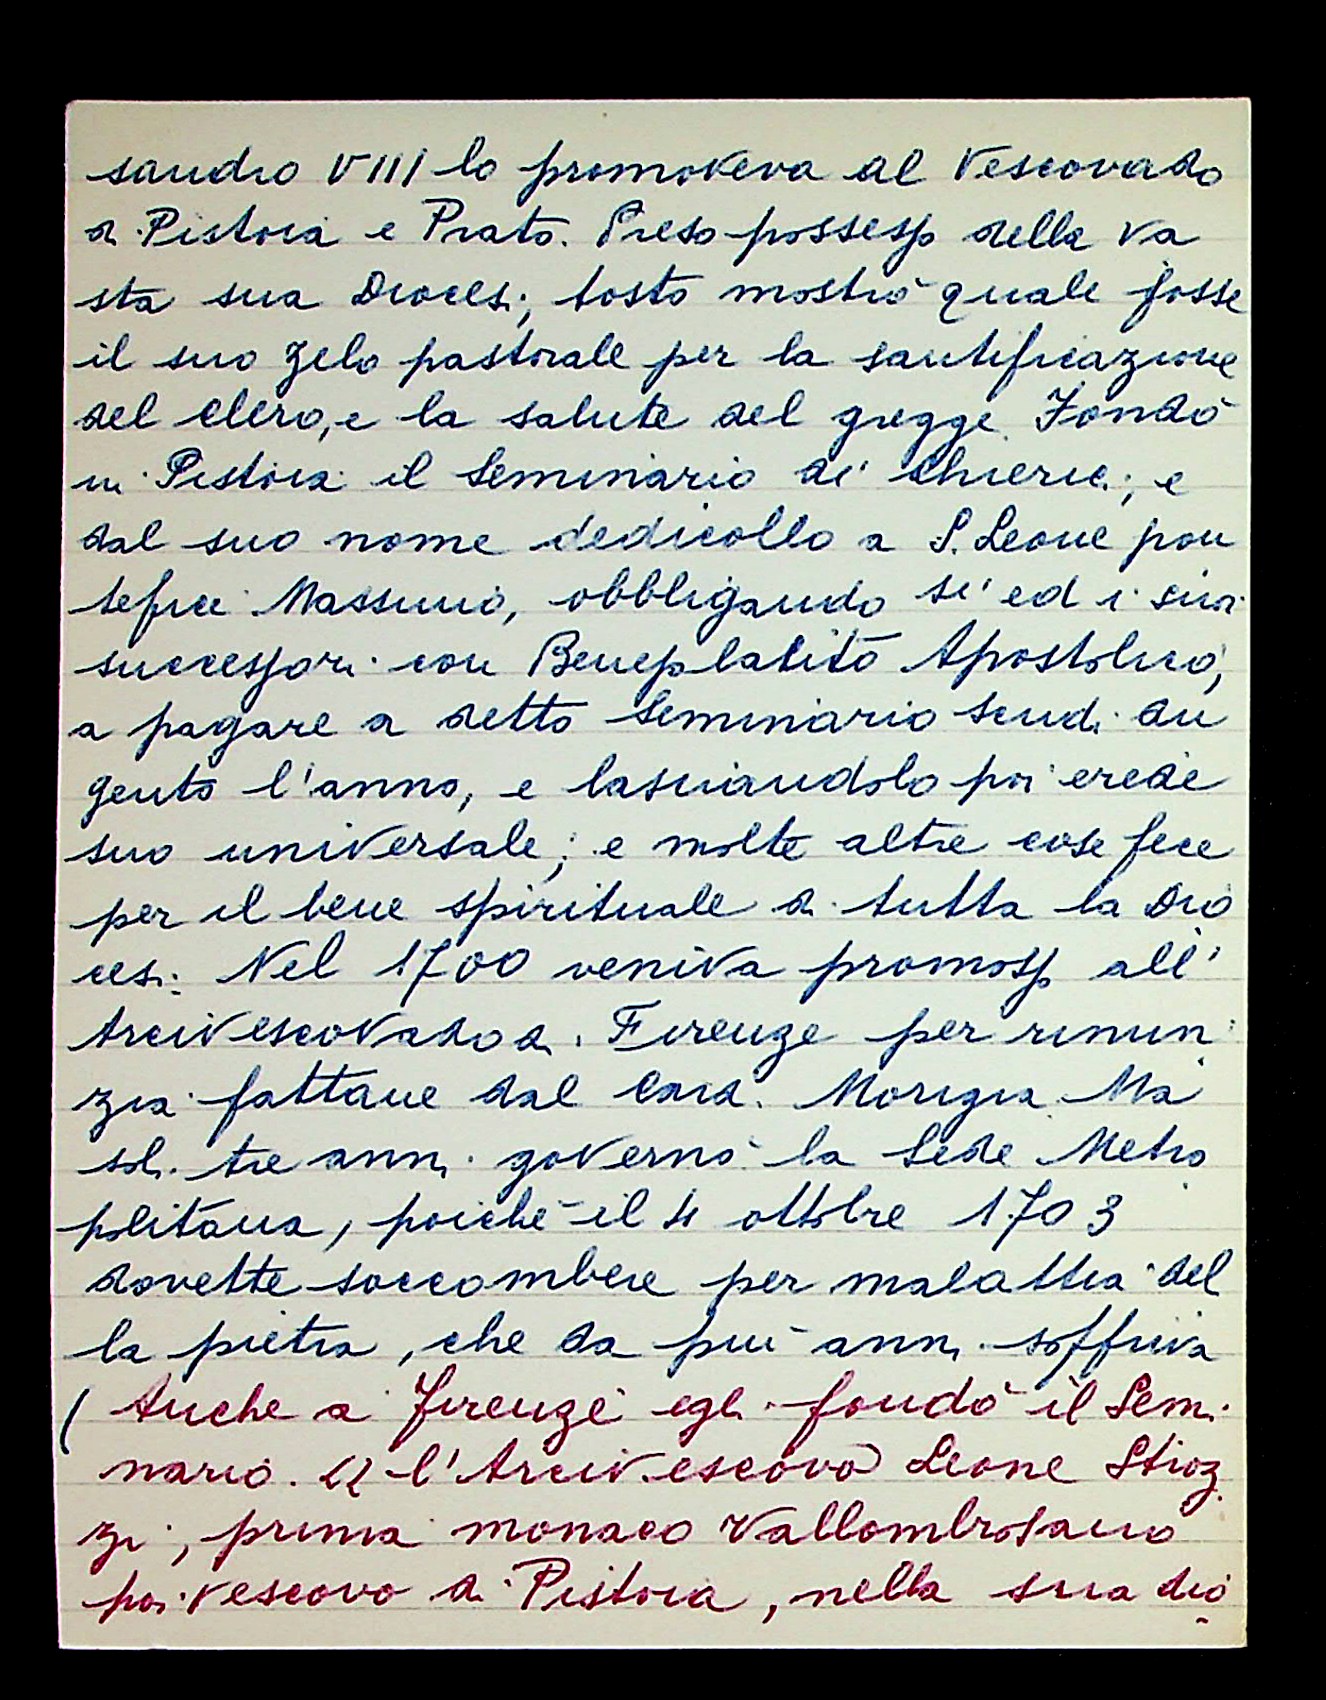 sandro VIII lo promoveva al Vescovado
di Pistoia e Prato. Preso possesso della va
sta sua Diocesi, tosto mostrò quale fosse
il suo zelo pastorale per la santificazione
del clero, e la salute del gregge. Fondò
in Pistoia il Seminario dei Chierici, e
dal suo nome dedicollo a S. Leone pon
tefice Massimo, obbligando sé ed i suoi
successori con Beneplatito Apostolico,
a pagare a detto Seminario scudi du
gento l'anno, e lasciandolo poi erede
suo universale; e molte altre cose fece
per il bene spirituale di tutta la Dio
cesi. Nel 1700 veniva promosso all'
Arcivescovado di Firenze per rinun
zia fattane dal Card. Morigia. Ma
soli tre anni governò la Sede Metro
politana, poiché il 4 ottobre 1703
dovette soccombere per malattia del
la pietra, che da più anni soffriva
(Anche a Firenze egli fondò il Semi
nario. "L'Arcivescovo Leone Stroz
zi, prima monaco Vallombrosano
poi Vescovo di Pistoia, nella sua dio